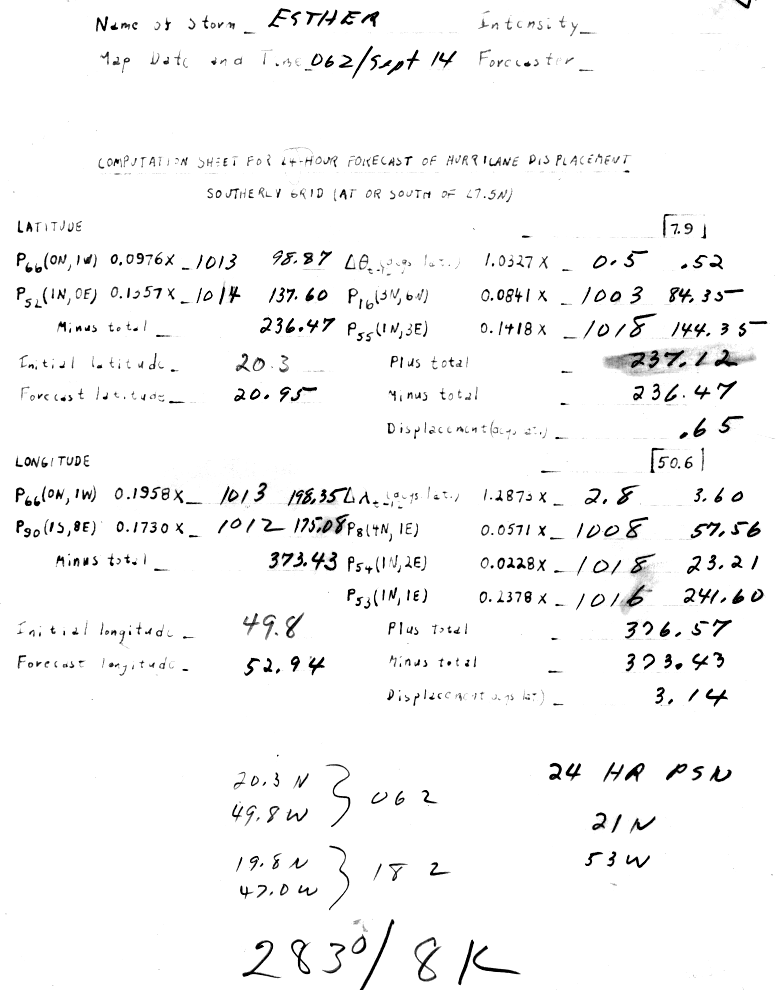 Name of Storm _ ESTHER Intensity_
Map Date and Time_ 06Z/Sept 14 Forecaster _
COMPUTATION SHEET FOR 24-HOUR FORECAST OF HURRICANE DISPLACEMENT
SOUTHERLY GRID (AT OR SOUTH OF 27.5N)
LATITUDE _ 7.9
P66(0N,1W) 0.0976X _ 1013 98.87 Δθ (degs lat.) 1.0327 X _ 0.5 .52
P52(1N,0E) 0.1357X _ 1014 137.60 P16(3N,6W) 0.0841 X _ 1003 84.35
Minus total _ 236.47 P55(1N,3E) 0.1418 X _ 1018 144.35
Initial latitude _ 20.3 Plus total _ 237.12
Forecast latitude _ 20.95 Minus total _ 236.47
Displacement (degs lat.) _ .65
LONGITUDE _ 50.6
P66(0N,1W) 0.1958X _ 1013 198.35 Δλ (degs lat.) 1.2875 X _ 2.8 3.60
P90(1S,8E) 0.1730X _ 1012 175.08 P8(4N,1E) 0.0571 X _ 1008 57.56
Minus total _ 373.43 P54(1N,2E) 0.0228 X _ 1018 23.21
P53(1N,1E) 0.2378 X _ 1016 241.60
Initial longitude _ 49.8 Plus total _ 376.57
Forecast longitude _ 52.94 Minus total _ 373.43
Displacement (degs lat) _ 3.14
20.3 N
49.8 W } 06Z
19.8 N
47.0 W } 18Z
24 HR PSN
21N
53W
283°/8K